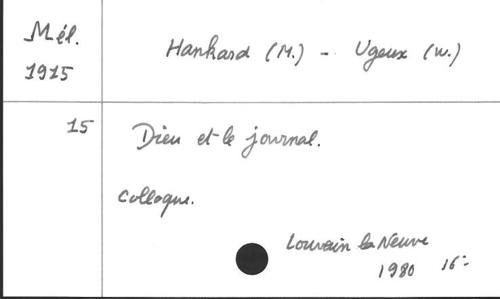 Mél. Hankard (M.) - Ugeux (W.)
1915
15 Dieu et le journal.
Colloque.
Louvain la Neuve
1980 16°